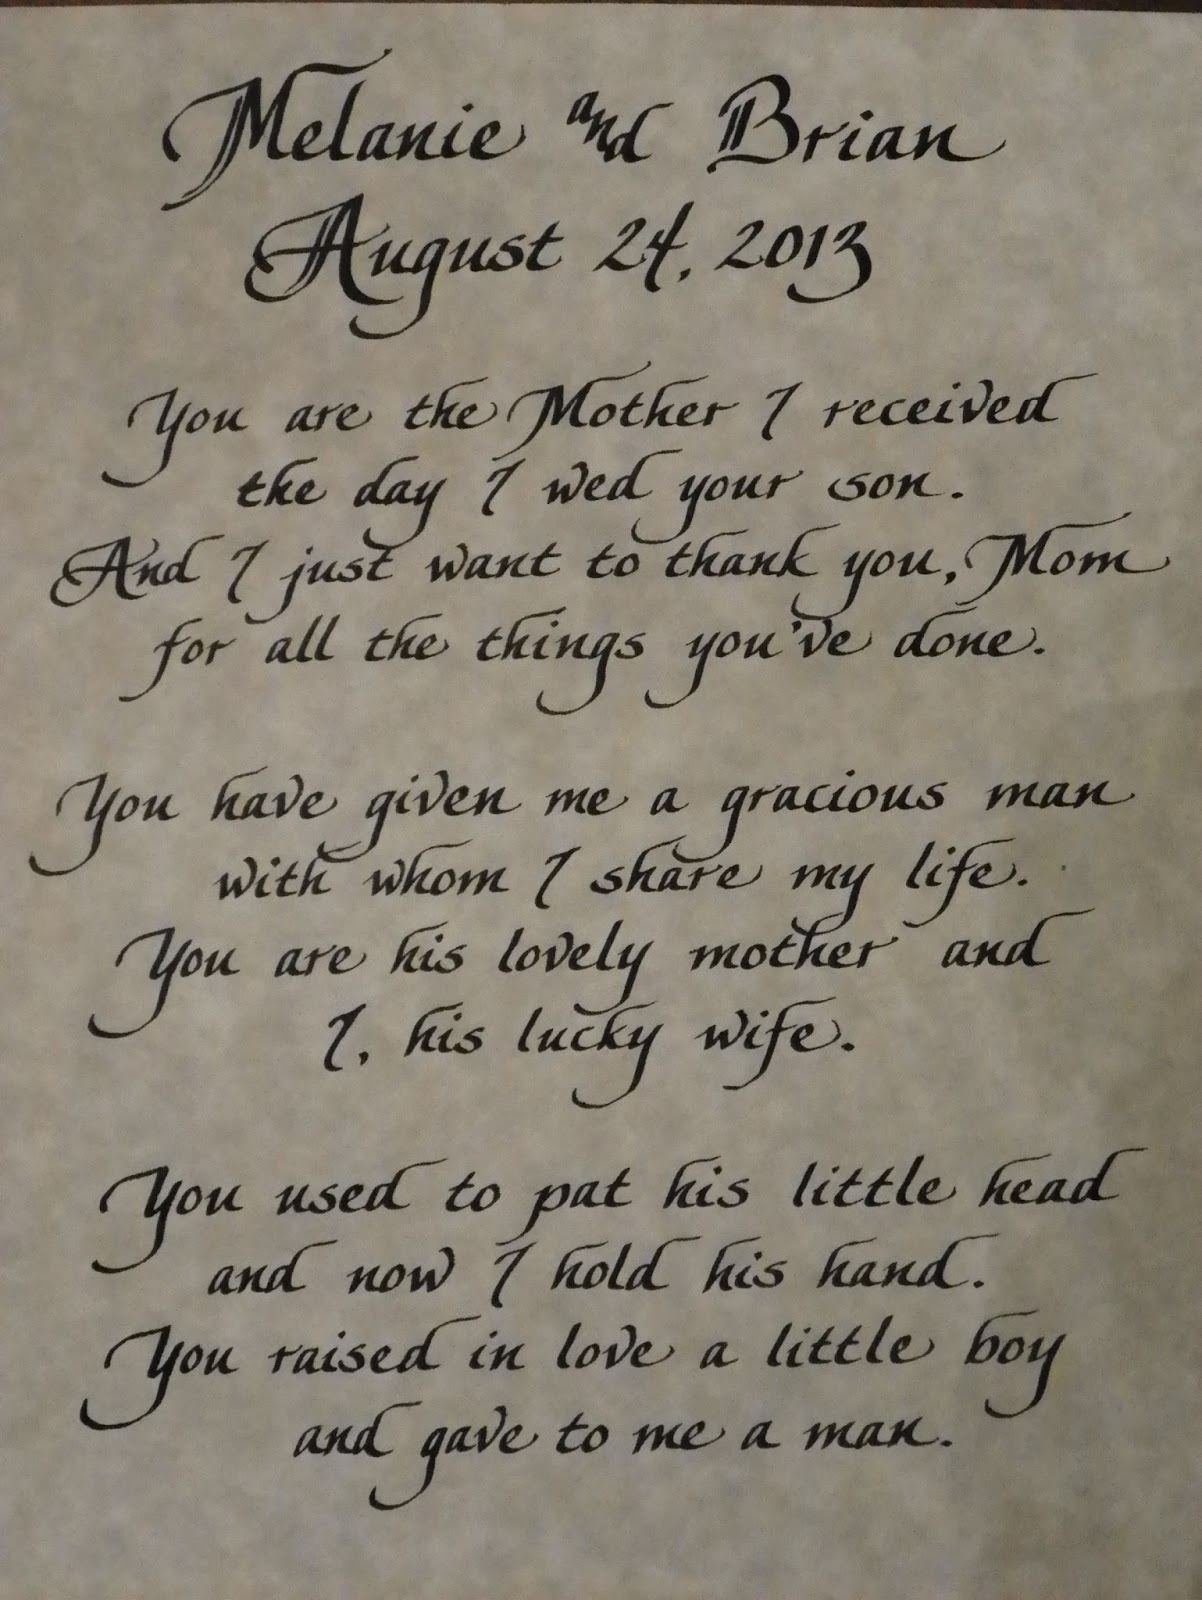 Melanie and Brian
August 24, 2013
You are the Mother I received
the day I wed your son.
And I just want to thank you, Mom
for all the things you've done.
You have given me a gracious man
with whom I share my life.
You are his lovely mother and
I, his lucky wife.
You used to pat his little head
and now I hold his hand.
You raised in love a little boy
and gave to me a man.